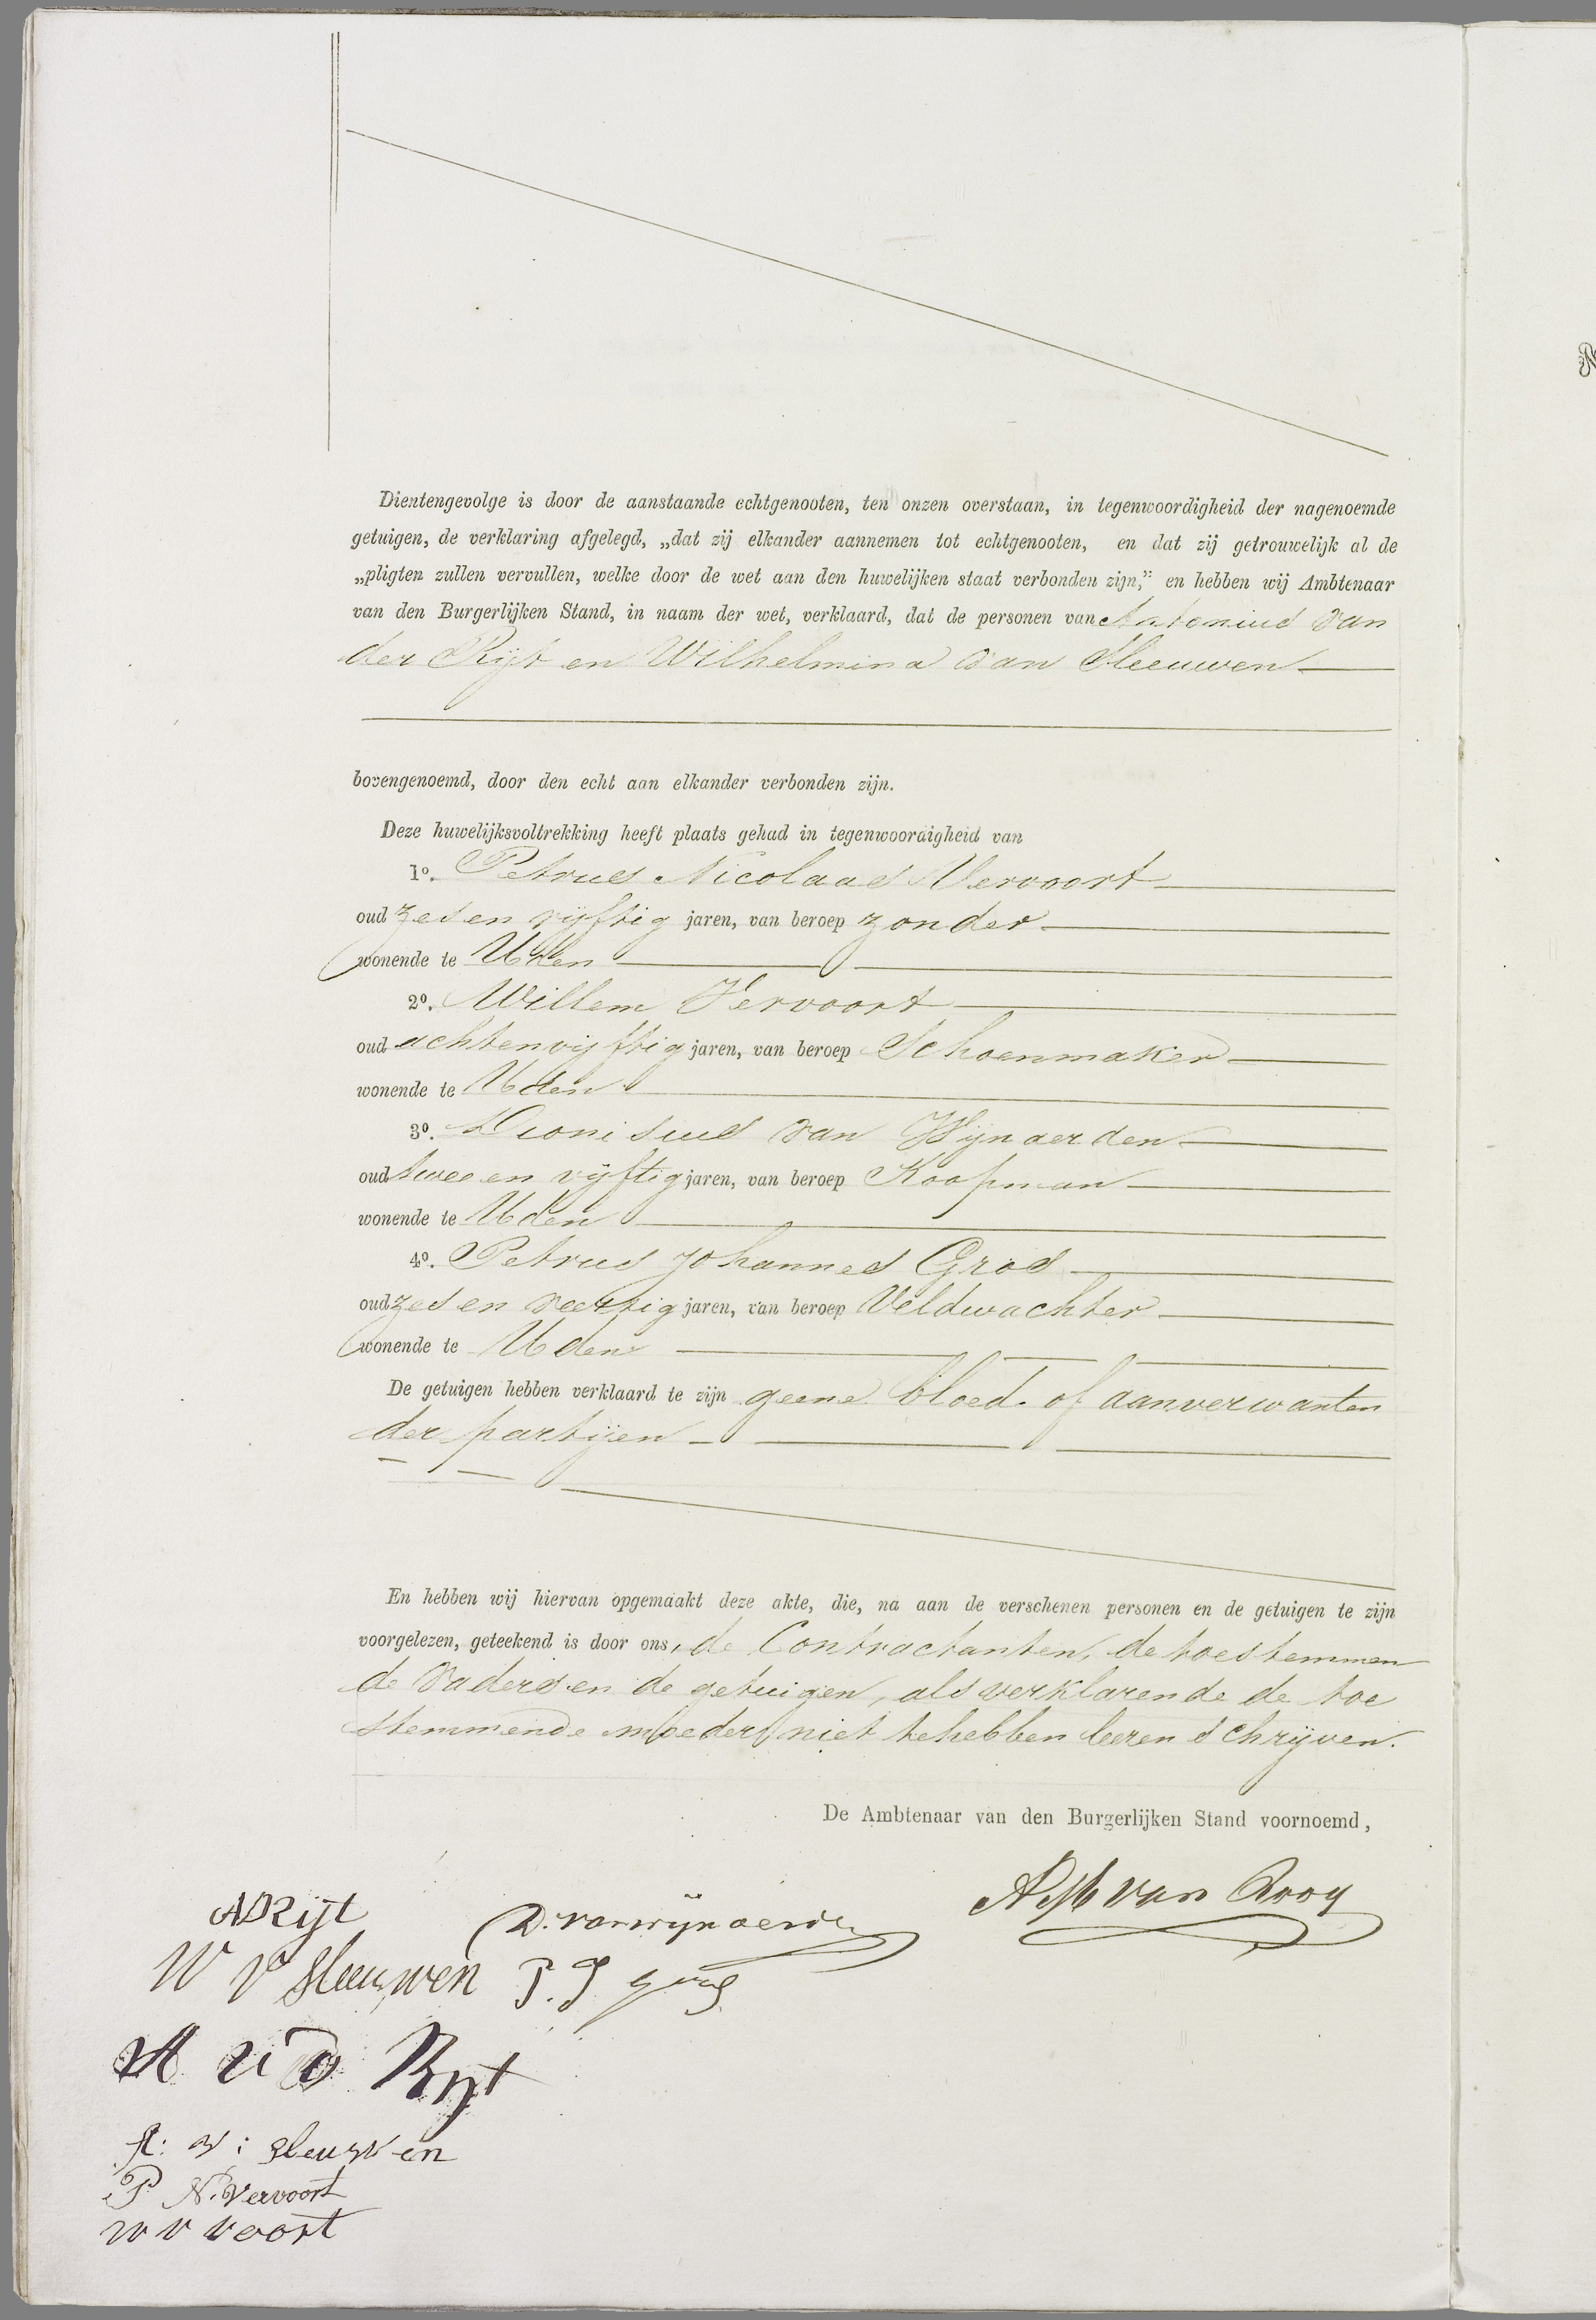 Dientengevolge is door de aanstaande echtgenooten, ten onzen overstaan, in tegenwoordigheid der nagenoemde
getuigen, de verklaring afgelegd, „dat zij elkander aannemen tot echtgenooten, en dat zij getrouwelijk al de
„pligten zullen vervullen, welke door de wet aan den huwelijken staat verbonden zijn,” en hebben wij Ambtenaar
van den Burgerlijken Stand, in naam der wet, verklaard, dat de personen van Antonius van
der Rijt en Wilhelmina van Sleeuwen
bovengenoemd, door den echt aan elkander verbonden zijn.
Deze huwelijksvoltrekking heeft plaats gehad in tegenwoordigheid van
1o. Petrus Nicolaas Vervoort
oud zesen vijftig jaren, van beroep zonder
wonende te Uden
2o. Willem Vervoort
oud achtenvijftig jaren, van beroep Schoenmaker
wonende te Uden
3o. Dionisius van Wijnaerden
oud tweeen vijftig jaren, van beroep Koopman
wonende te Uden
4o. Petrus Johannes Gros
oud zesen veertig jaren, van beroep Veldwachter
wonende te Uden
De getuigen hebben verklaard te zijn geene bloed- of aanverwanten
der partijen
En hebben wij hiervan opgemaakt deze akte, die, na aan de verschenen personen en de getuigen te zijn
voorgelezen, geteekend is door ons, de Contractanten, de toestemmen
de vaders en de getuigen, als verklarende de toe
stemmende moeders niet te hebben leeren schrijven.
De Ambtenaar van den Burgerlijken Stand voornoemd,
van Rooy
ADRijt
D. van wijnaerden
W V Sleeuwen
P. J gros
A v d Rijt
A: v: Sleuwen
P N. Vervoort
W V Voort